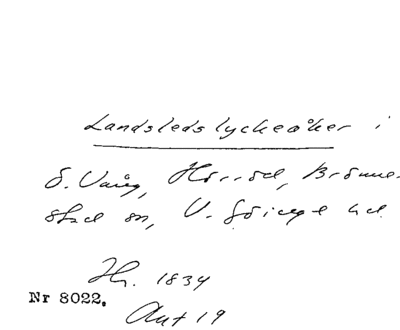 Landsledslyckeåker i
Ö. Vång, Hörröd, Brönne-
stad sn, V. Göinge hd.
Hs. 1834
Nr 8022.
Akt 19